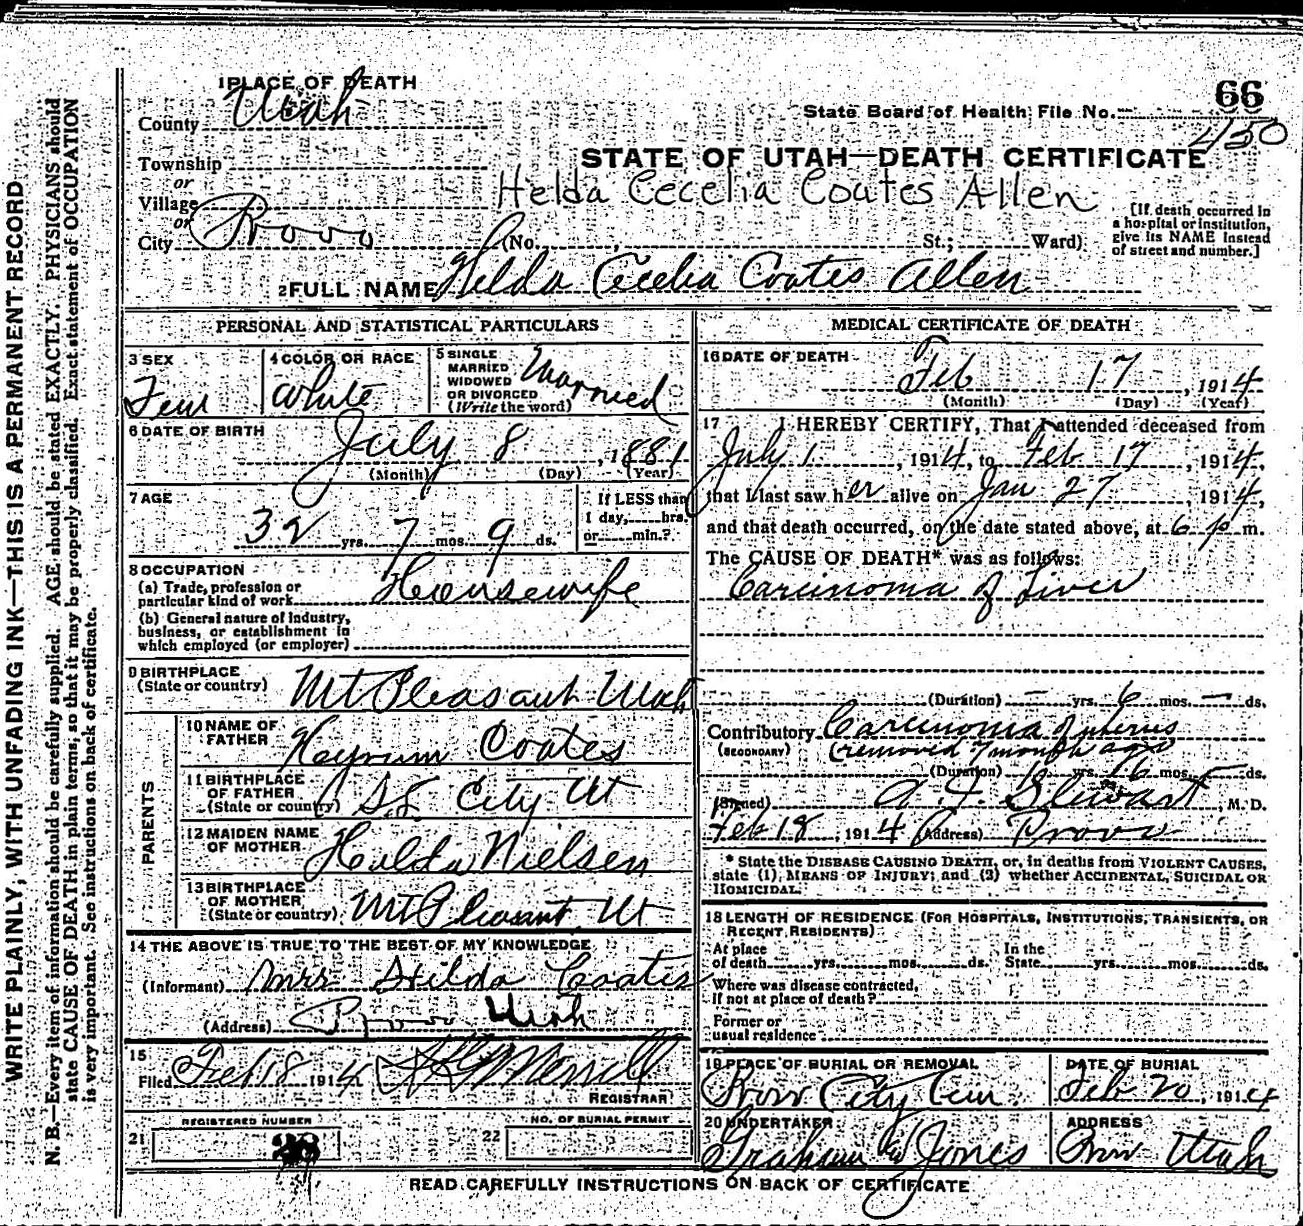 66
State Board of Health File No. 450
1 PLACE OF DEATH
County Utah
Township
or
Village
or
City Provo
STATE OF UTAH—DEATH CERTIFICATE
Helda Cecelia Coates Allen
(No. , St.; Ward)
[If death occurred in
a hospital or institution,
give its NAME instead
of street and number.]
2 FULL NAME Helda Cecelia Coates Allen
PERSONAL AND STATISTICAL PARTICULARS
3 SEX
Fem
4 COLOR OR RACE
White
5 SINGLE
MARRIED
WIDOWED
OR DIVORCED
(Write the word)
Married
6 DATE OF BIRTH
July 8, 1881
(Month) (Day) (Year)
7 AGE
32 yrs. 7 mos. 9 ds.
If LESS than
1 day, hrs.
or min.?
8 OCCUPATION
(a) Trade, profession or
particular kind of work Housewife
(b) General nature of Industry,
business, or establishment in
which employed (or employer)
9 BIRTHPLACE
(State or country) Mt Pleasant Utah
PARENTS
10 NAME OF
FATHER Heyrum Coates
11 BIRTHPLACE
OF FATHER
(State or country) S.L. City Ut
12 MAIDEN NAME
OF MOTHER Hulda Nielsen
13 BIRTHPLACE
OF MOTHER
(State or country) Mt Pleasant Ut
14 THE ABOVE IS TRUE TO THE BEST OF MY KNOWLEDGE
(Informant) Mrs Hilda Coates
(Address) Provo Utah
15
Filed Feb 18 1914 Merrill
REGISTRAR
21 REGISTERED NUMBER
22 NO. OF BURIAL PERMIT
MEDICAL CERTIFICATE OF DEATH
16 DATE OF DEATH
Feb 17, 1914
(Month) (Day) (Year)
17 I HEREBY CERTIFY, That I attended deceased from
July 1, 1914, to Feb 17, 1914,
that I last saw her alive on Jan 27, 1914,
and that death occurred, on the date stated above, at 6 p m.
The CAUSE OF DEATH* was as follows:
Carcinoma of Liver
(Duration) — yrs. 6 mos. — ds.
Contributory Carcinoma of uterus
(SECONDARY) (removed 7 month ago)
(Duration) yrs. 16 mos. ds.
(Signed) Stewart, M. D.
Feb 18, 1914 (Address) Provo
* State the DISEASE CAUSING DEATH, or, in deaths from VIOLENT CAUSES,
state (1), MEANS OF INJURY; and (2) whether ACCIDENTAL, SUICIDAL OR
HOMICIDAL.
18 LENGTH OF RESIDENCE (FOR HOSPITALS, INSTITUTIONS, TRANSIENTS, OR
RECENT RESIDENTS)
At place
of death yrs. mos. ds.
In the
State yrs. mos. ds.
Where was disease contracted,
If not at place of death?
Former or
usual residence
19 PLACE OF BURIAL OR REMOVAL
Prov City Cem.
DATE OF BURIAL
Feb 20, 1914
20 UNDERTAKER
Graham W Jones
ADDRESS
Prov Utah
READ CAREFULLY INSTRUCTIONS ON BACK OF CERTIFICATE
WRITE PLAINLY, WITH UNFADING INK—THIS IS A PERMANENT RECORD
N. B.—Every item of information should be carefully supplied. AGE should be stated EXACTLY. PHYSICIANS should
state CAUSE OF DEATH in plain terms, so that it may be properly classified. Exact statement of OCCUPATION
is very important. See instructions on back of certificate.